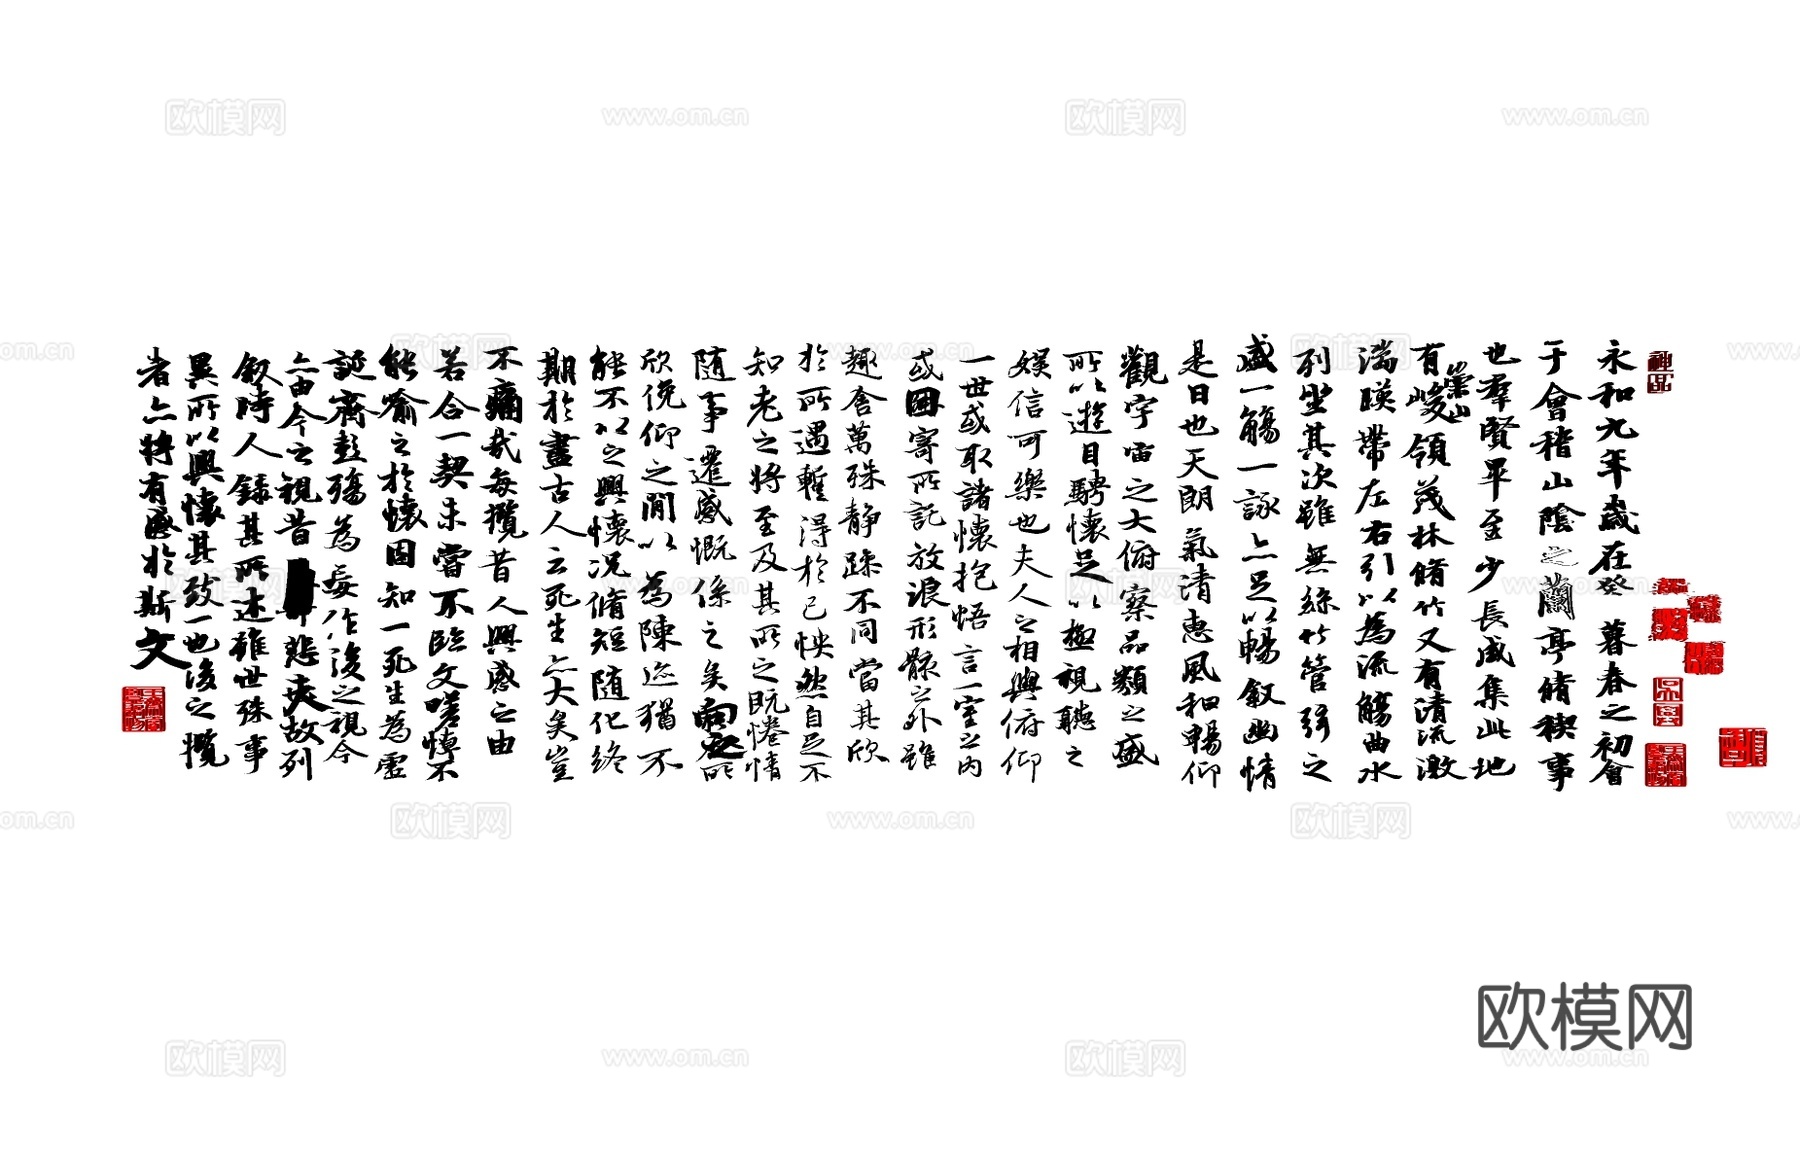 永和九年歲在癸丑暮春之初會
于會稽山陰之蘭亭脩稧事
也羣賢畢至少長咸集此地
有崇山峻領茂林脩竹又有清流激
湍暎帶左右引以為流觴曲水
列坐其次雖無絲竹管弦之
盛一觴一詠亦足以暢敘幽情
是日也天朗氣清惠風和暢仰
觀宇宙之大俯察品類之盛
所以遊目騁懷足以極視聽之
娛信可樂也夫人之相與俯仰
一世或取諸懷抱悟言一室之內
或因寄所託放浪形骸之外雖
趣舍萬殊靜躁不同當其欣
於所遇暫得於己怏然自足不
知老之將至及其所之既惓情
隨事遷感慨係之矣向之所
欣俛仰之間以為陳迹猶不
能不以之興懷況脩短隨化終
期於盡古人云死生亦大矣豈
不痛哉每攬昔人興感之由
若合一契未嘗不臨文嗟悼不
能喻之於懷固知一死生為虛
誕齊彭殤為妄作後之視今
亦由今之視昔悲夫故列
敘時人錄其所述雖世殊事
異所以興懷其致一也後之攬
者亦將有感於斯文
神品
欧模网
www.om.cn